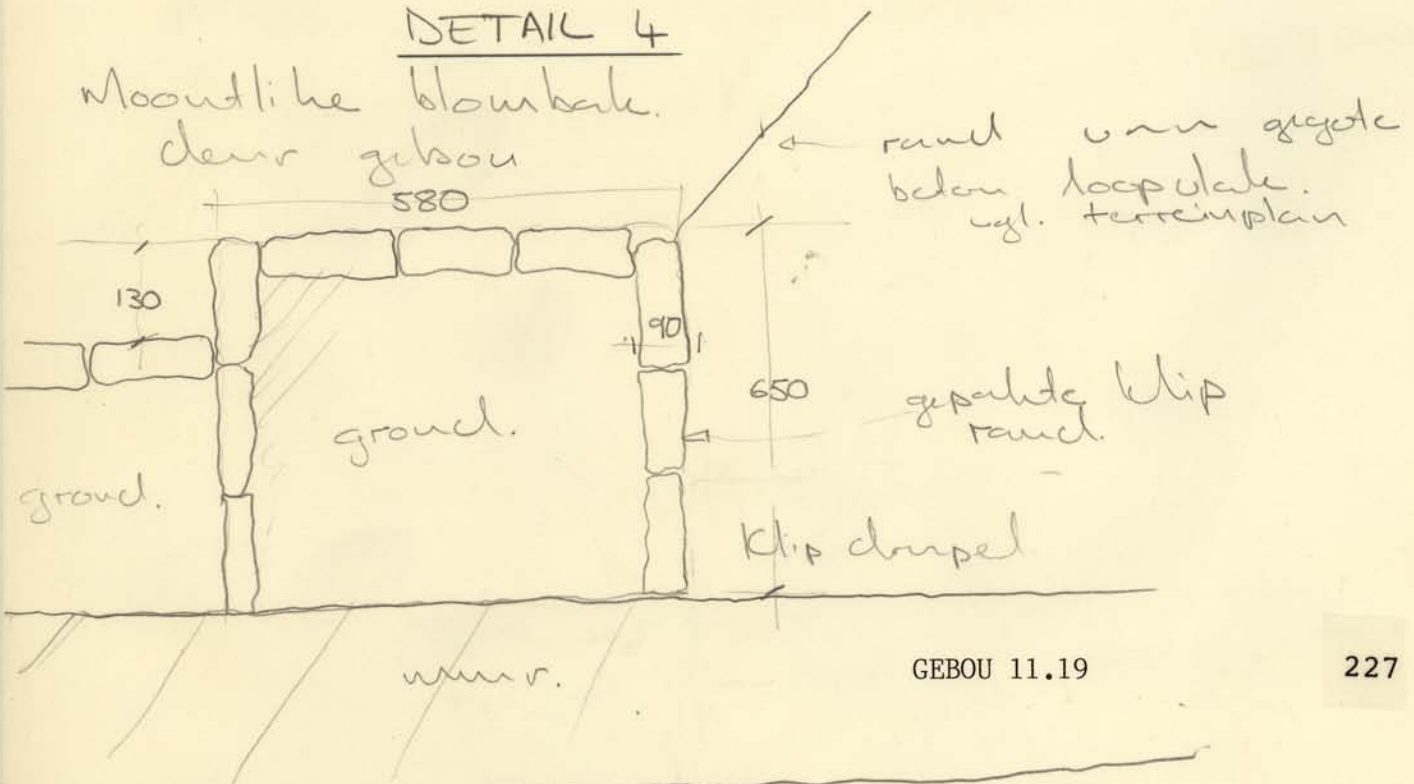 DETAIL 4
Moontlike blombak.
deur gebou
rand van gegote
beton loopvlak.
vgl. terreinplan
580
130
90
650
gepakte klip
rand.
grond.
grond.
Klip drupel
muur.
GEBOU 11.19
227